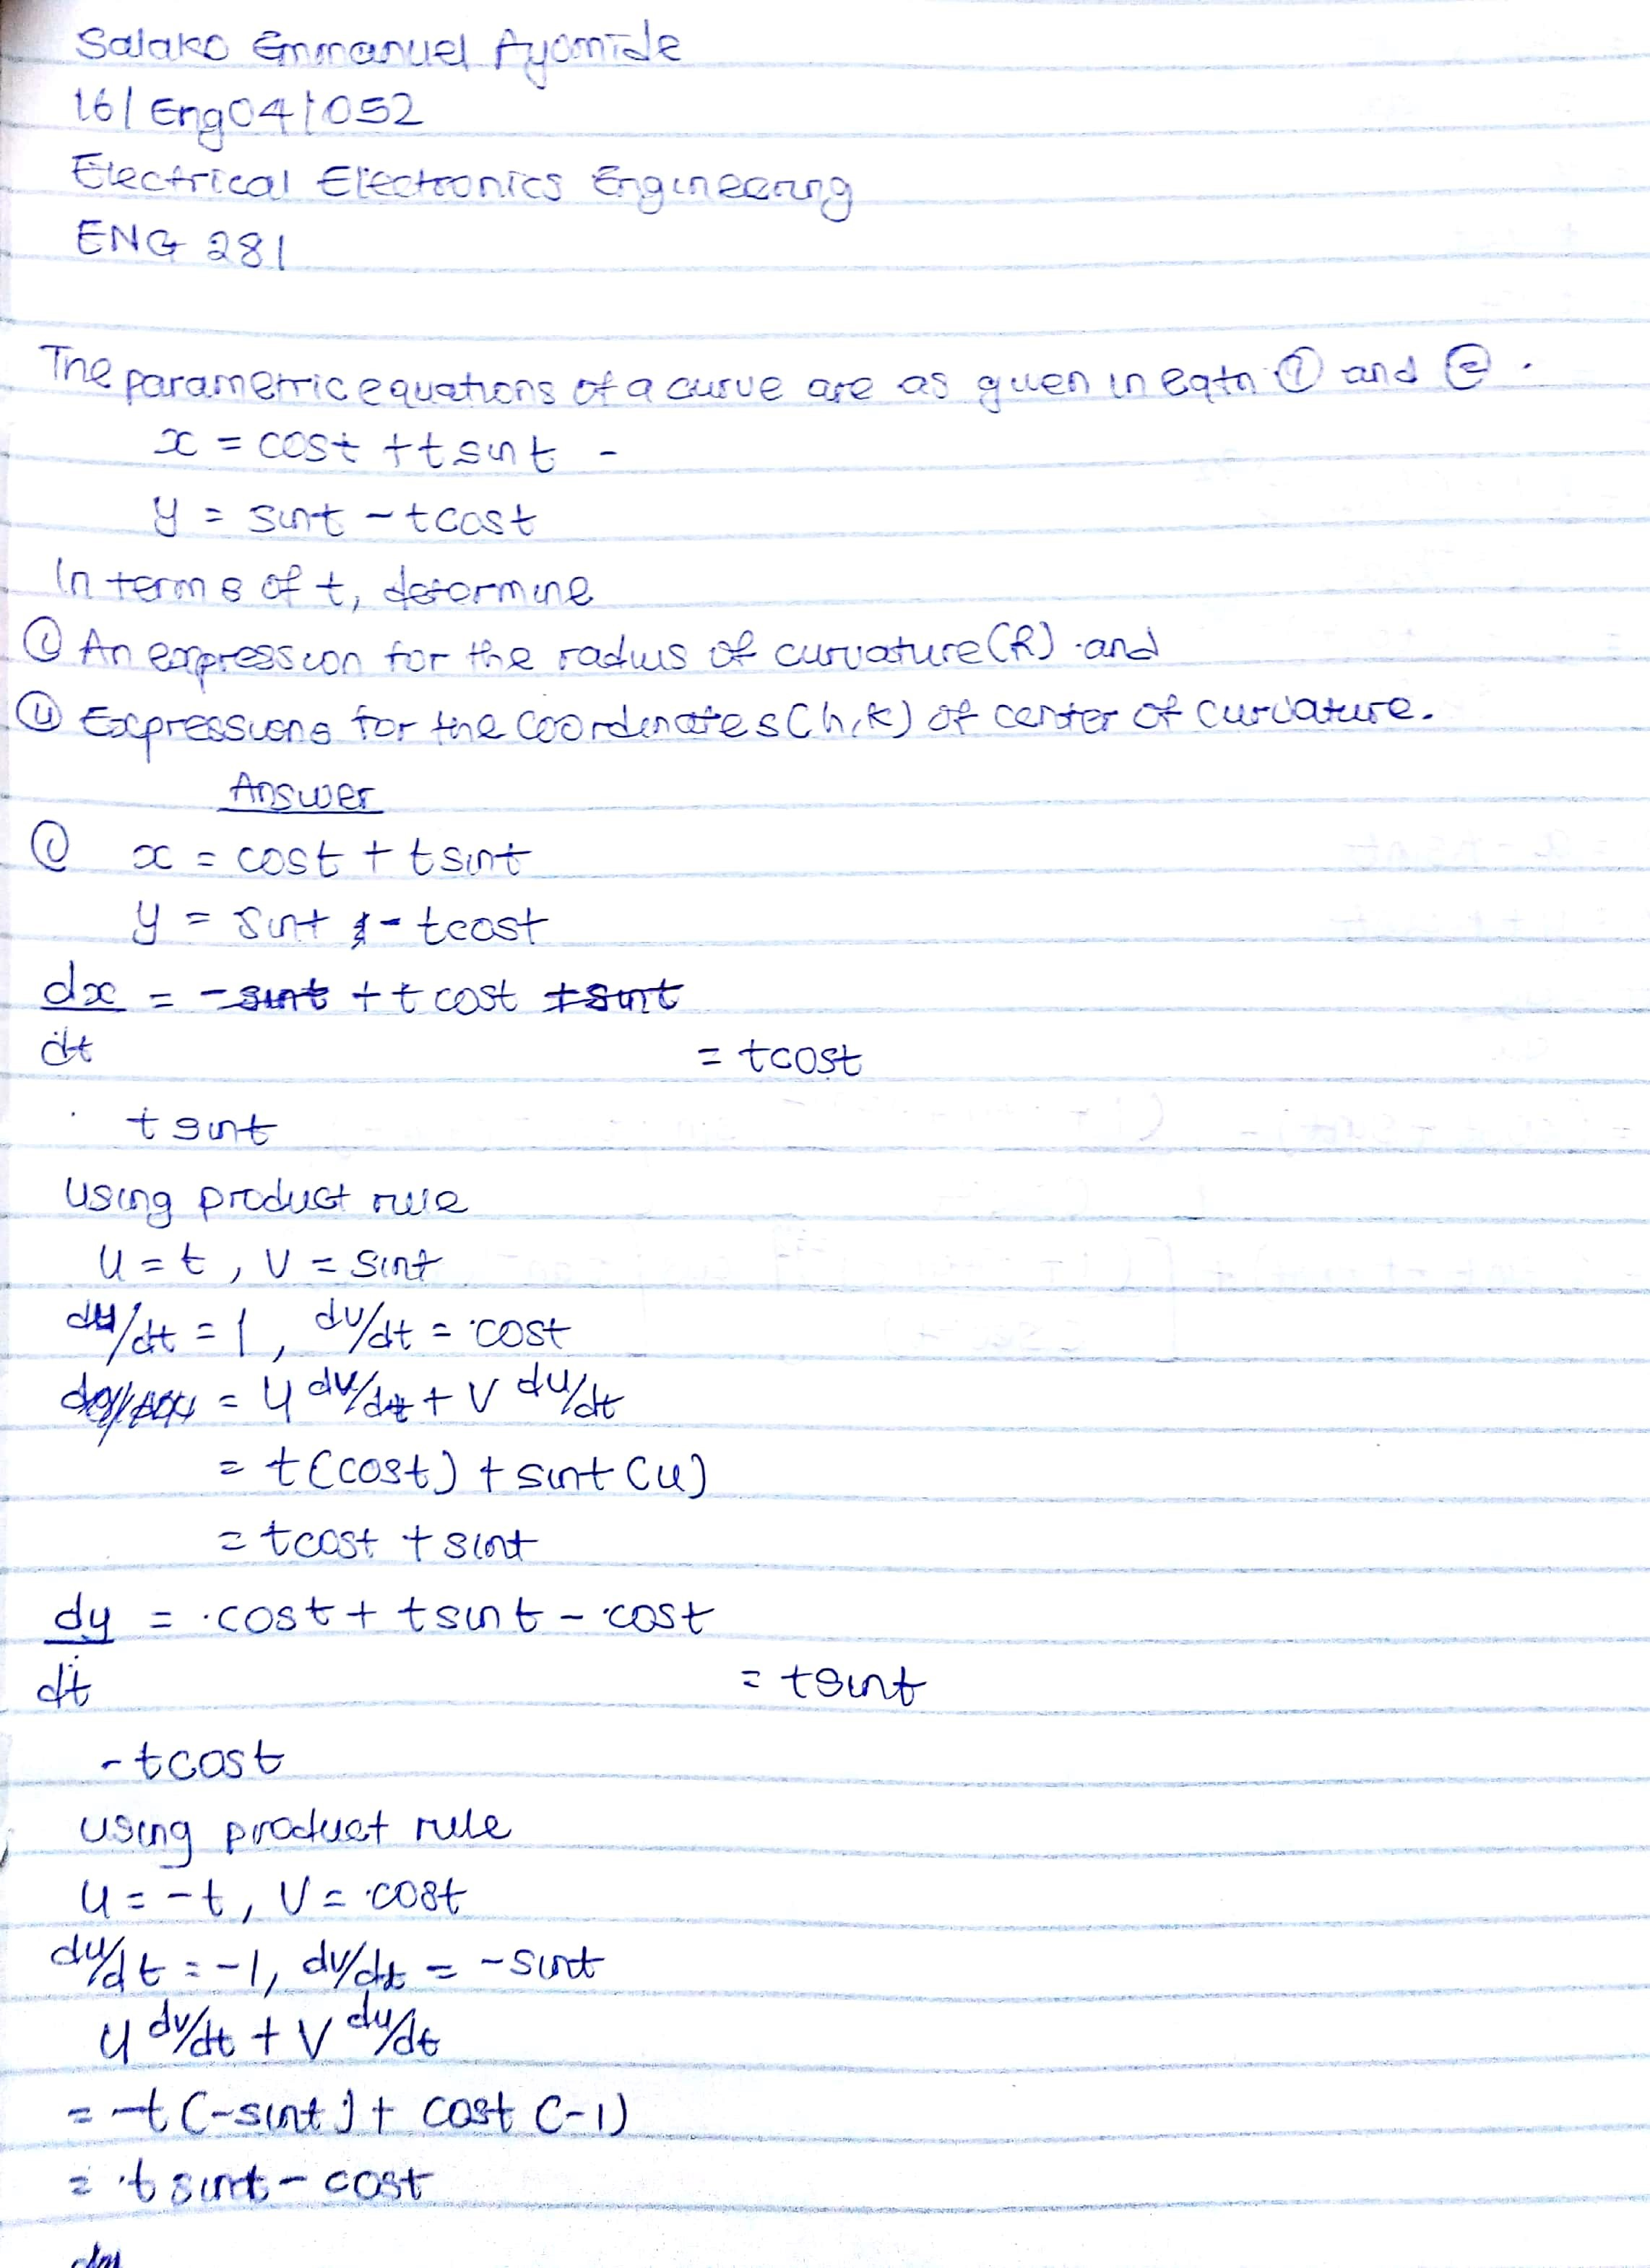 Salako Emmanuel Ayomide
16/Eng04/052
Electrical Electronics Engineering
ENG 281
The parametric equations of a curve are as given in eqtn ① and ②.
x = cost + t sint -
y = sint - tcost
In terms of t, determine
(i) An expression for the radius of curvature (R) and
(ii) Expressions for the Coordinates (h,k) of center of Curvature.
Answer
(i) x = cost + tsint
y = sint - tcost
dx/dt = -sint + t cost + sint
= tcost
tsint
Using product rule
U = t, V = sint
du/dt = 1, dv/dt = cost
= U dv/dt + V du/dt
= t(cost) + sint (1)
= tcost + sint
dy/dt = cost + tsint - cost
= tsint
-tcost
using product rule
U = -t, V = cost
du/dt = -1, dv/dt = -sint
U dv/dt + V du/dt
= -t(-sint) + cost (-1)
= tsint - cost
dy